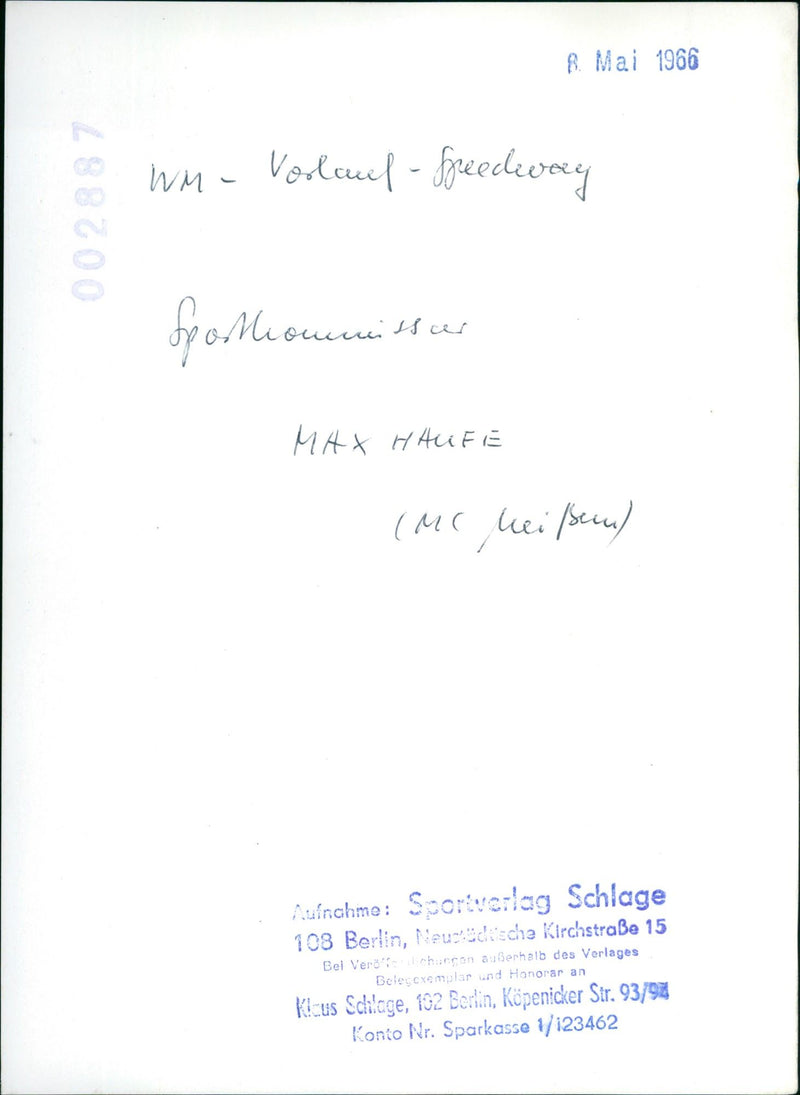 8. Mai 1966
002887
WM - Vorlauf - Speedway
Sportkommissar
MAX HAUFE
(MC Meißen)
Aufnahme: Sportverlag Schlage
108 Berlin, Neustädtische Kirchstraße 15
Bei Veröffentlichungen außerhalb des Verlages
Belegexemplar und Honorar an
Klaus Schlage, 102 Berlin, Köpenicker Str. 93/94
Konto Nr. Sparkasse 1/123462